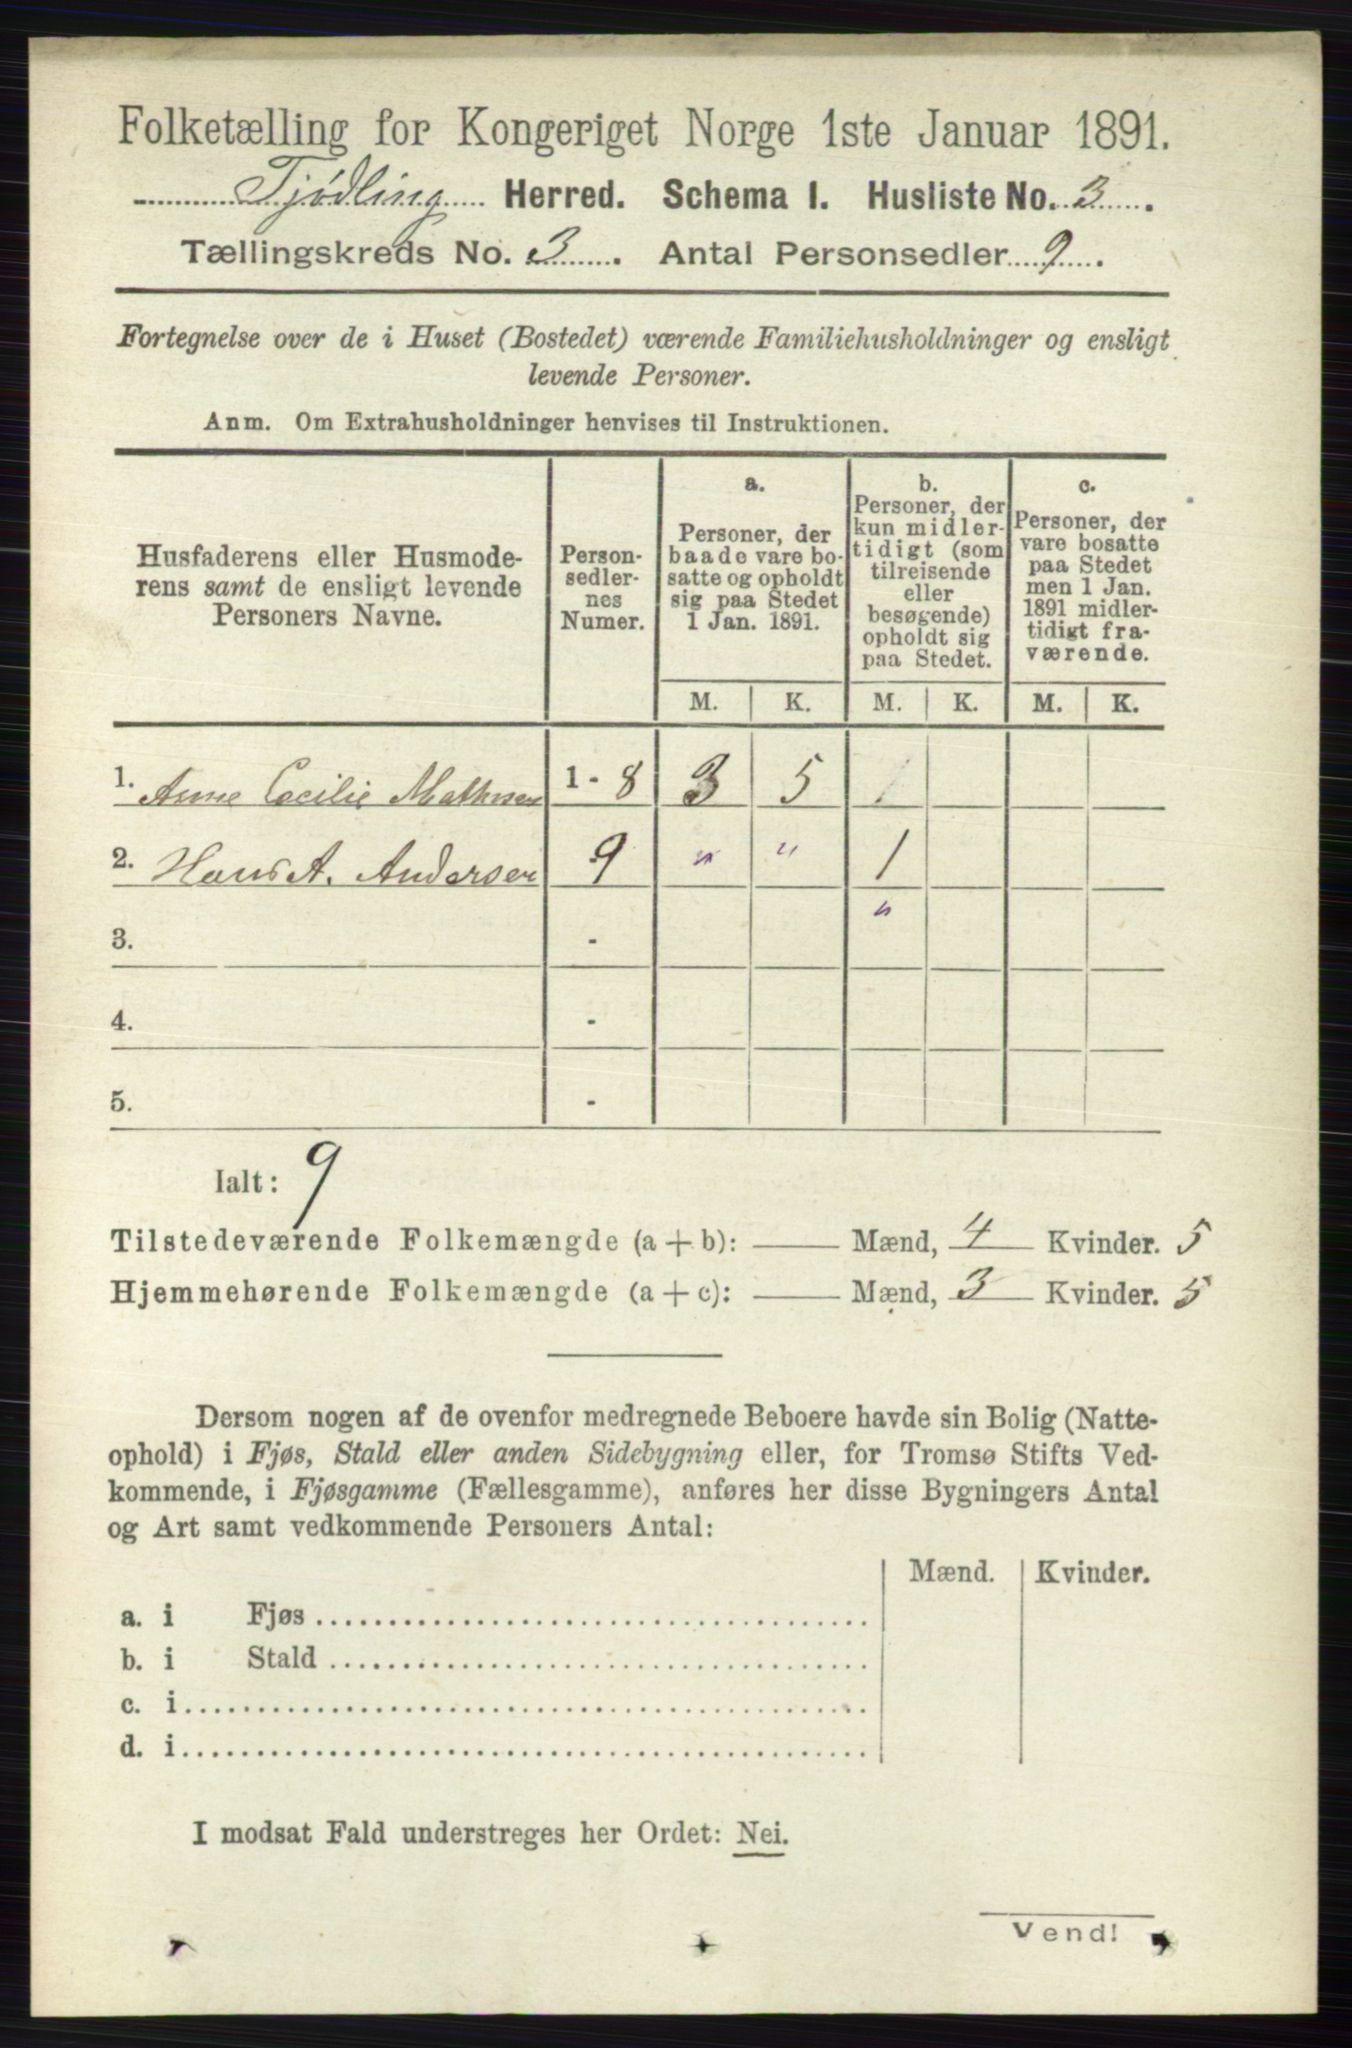 Folketælling for Kongeriget Norge 1ste Januar 1891.
Tjødling Herred. Schema I. Husliste No. 3.
Tællingskreds No. 3. Antal Personsedler 9.
Fortegnelse over de i Huset (Bostedet) værende Familiehusholdninger og ensligt
levende Personer.
Anm. Om Extrahusholdninger henvises til Instruktionen.
Husfaderens eller Husmode-
rens samt de ensligt levende
Personers Navne.
Person-
sedler-
nes
Numer.
a.
Personer, der
baade vare bo-
satte og opholdt
sig paa Stedet
1 Jan. 1891.
b.
Personer, der
kun midler-
tidigt (som
tilreisende
eller
besøgende)
opholdt sig
paa Stedet.
c.
Personer, der
vare bosatte
paa Stedet
men 1 Jan.
1891 midler-
tidigt fra-
værende.
M. K. M. K. M. K.
1. Anne Cecilie Mathisen 1 - 8 3 5 1
2. Hans A. Andersen 9 " " 1
3. - "
4. -
5. -
Ialt: 9
Tilstedeværende Folkemængde (a + b): Mænd, 4 Kvinder. 5
Hjemmehørende Folkemængde (a + c): Mænd, 3 Kvinder. 5
Dersom nogen af de ovenfor medregnede Beboere havde sin Bolig (Natte-
ophold) i Fjøs, Stald eller anden Sidebygning eller, for Tromsø Stifts Ved-
kommende, i Fjøsgamme (Fællesgamme), anføres her disse Bygningers Antal
og Art samt vedkommende Personers Antal:
Mænd. Kvinder.
a. i Fjøs
b. i Stald
c. i
d. i
I modsat Fald understreges her Ordet: Nei.
Vend!